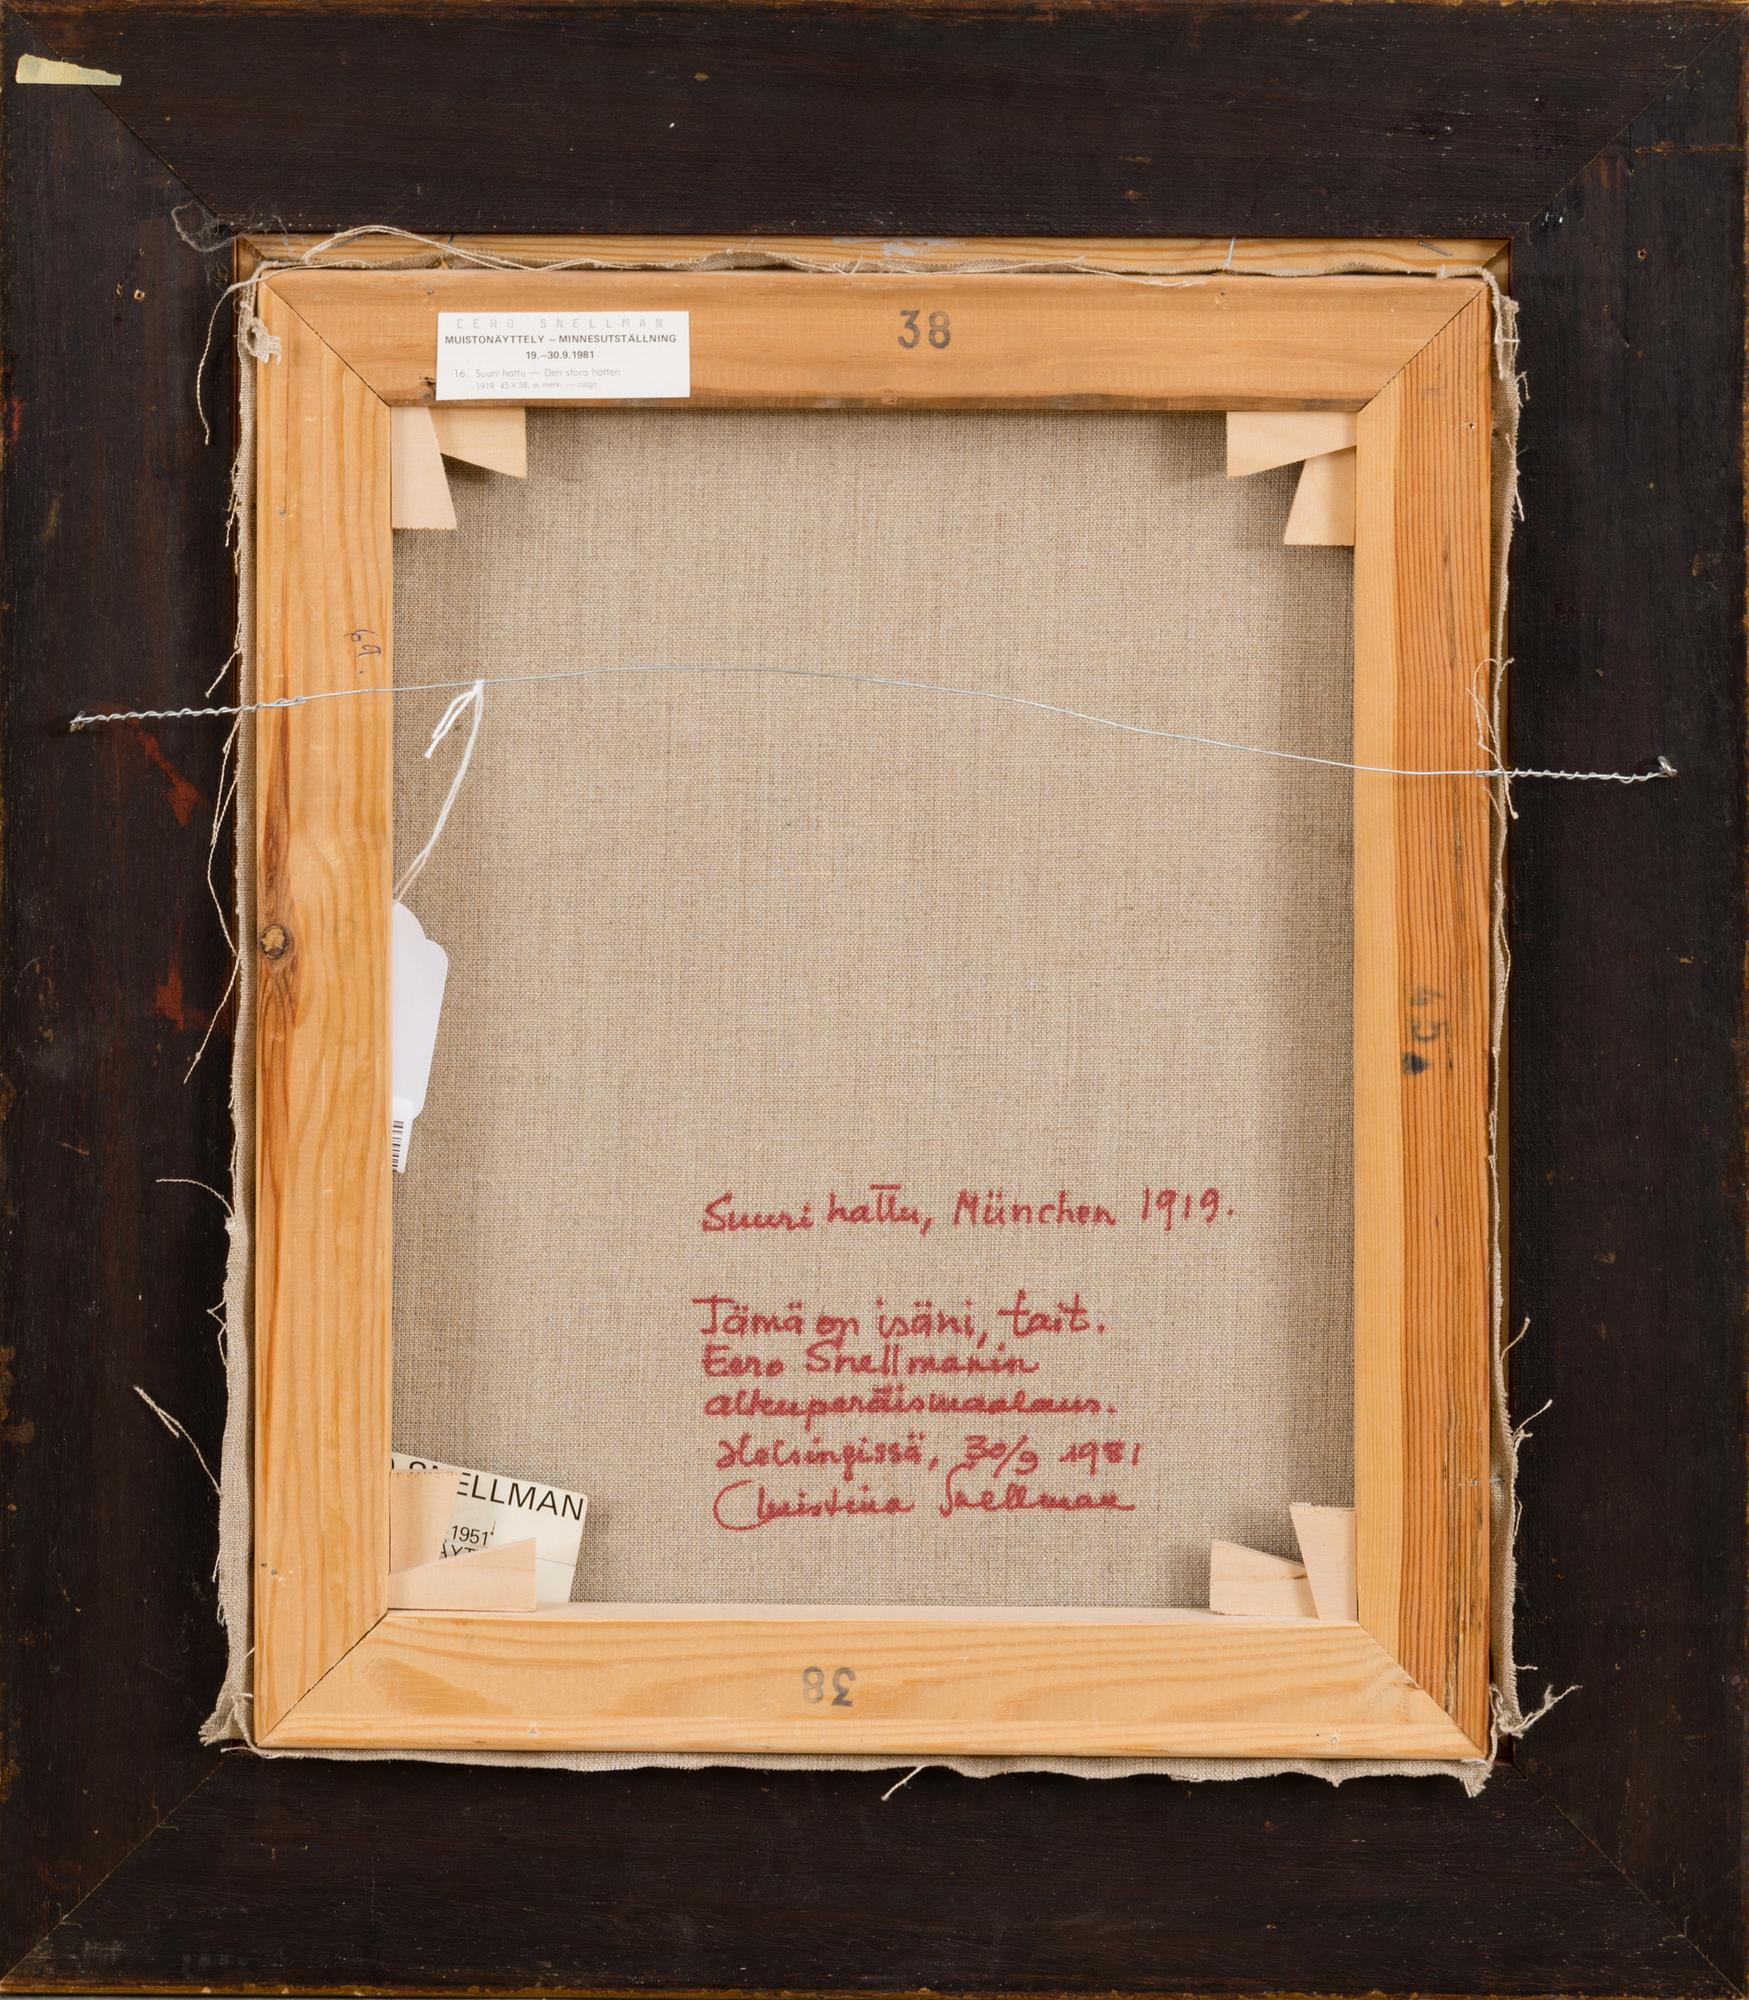 EERO SNELLMAN
MUISTONÄYTTELY – MINNESUTSTÄLLNING
19.–30.9.1981
16. Suuri hattu — Den stora hatten
1919, 45×38, ei merk. — osign.
38
69.
45
Suuri hattu, München 1919.
Tämä on isäni, tait.
Eero Snellmanin
alkuperäismaalaus.
Helsingissä, 30/9 1981
Christina Snellman
O SNELLMAN
1951
ÄYT
38